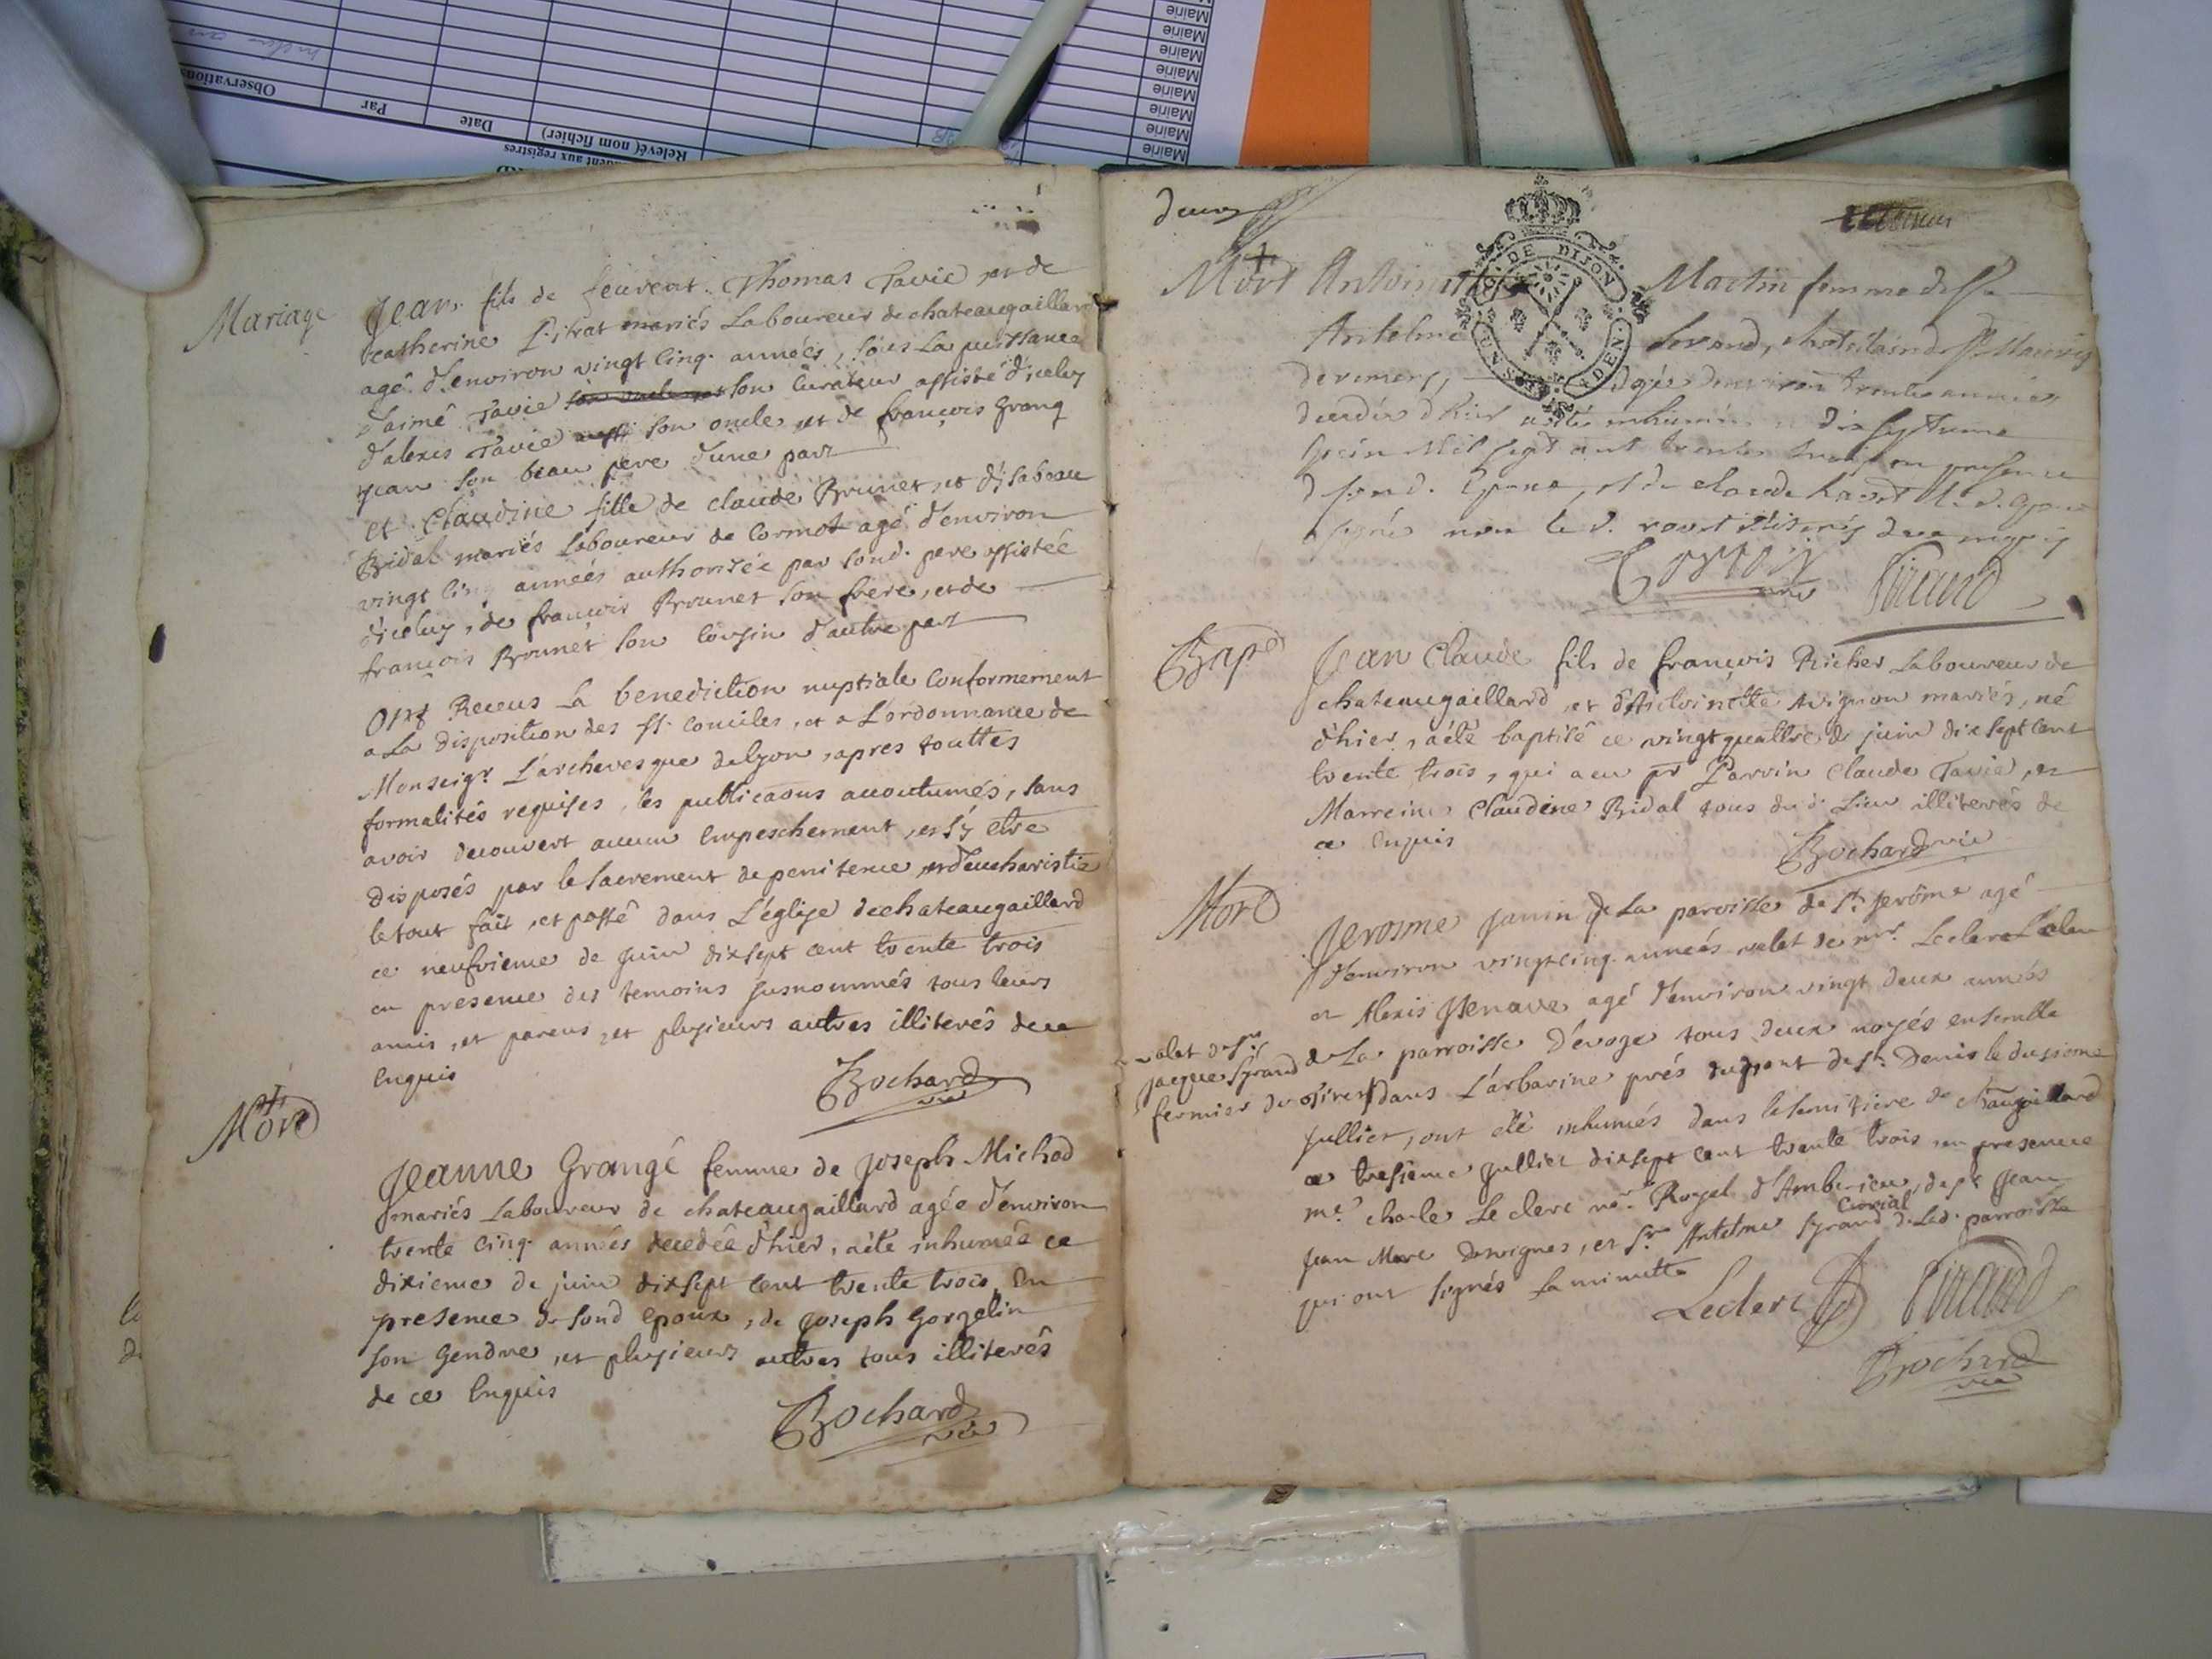 Mairie
Mairie
Mairie
Mairie
Mairie
Mairie
Mairie
Mairie
Observations
Par
Date
Relevé (nom fichier)
aux registres
Mariage
Jean, fils de feu Thomas Tavie, et de
Catherine mariés Laboureur de chateaugaillard
agé d'environ vingt cinq années, sous La puissance
d'aimé Tavie son Curateur assisté d'iceluy
d'alexis Tavie son oncle et de françois Grang
Jean son beau pere d'une part
et Claudine fille de claude Brunet, et d'isabeau
Bidal mariés Laboureur de Cormot agé d'environ
vingt cinq années authorisée par sond. pere assistée
d'iceluy, de françois Brunet son frere, et de
françois Brunet son Cousin d'autre part
Ont Receus La benediction nuptiale Conformement
a La disposition des Sts. Conciles, et a L'ordonnance de
Monseigr. L'archevesque de Lyon, apres touttes
formalités requises, les publicaons accoutumés, sans
avoir decouvert aucun Empeschement, et s'y etre
disposés par le Sacrement de penitence, et d'eucharistie
le tout fait, et passé dans L'église de chateaugaillard
ce neufvieme de juin dixsept cent trente trois
en presence des temoins susnommés tous leurs
amis, et parens, et plusieurs autres illiterés de ce
Enquis
Bochard
vic
Mort
Jeanne Grangé femme de Joseph Michod
mariés Laboureur de chateaugaillard agée d'environ
trente cinq années decedée d'hier, a été inhumée ce
dixieme de juin dixsept cent trente trois, En
presence de sond Epoux, de Joseph Gorgelin
son Gendre, et plusieurs autres tous illiterés
de ce Enquis
Bochard
vic
deux
DE DIJON
Mort Antoinette Martin femme de Sr
Antelme chatelain de St Mauris
de remens, agée d'environ trente années
decedée d'hier a été inhumée ce dix septieme
juin mil sept cent trente trois en presence
d sond. Epoux, et de claude
signé non le d. de ce enquis
Bapt
Jean Claude fils de françois Richer Laboureur de
chateaugaillard, et d'Antoinette Avignon mariés, né
d'hier, a été baptisé ce vingt quattre de juin dix sept cent
trente trois, qui a eu pr Parrin Claude Tavie, et
Marreine Claudine Bidal tous du d. Lieu illiterés de
ce Enquis
Bochard vic
Mort
Jerosme Janin de La paroisse de St. Jerôme agé
d'environ vingt cinq années valet de mr. Leclerc
et Alexis Jenave agé d'environ vingt deux années
valet de Sr.
jacque Syrand
fermier de
de La parroisse d'évoge tous deux noyés ensemble
dans L'arbarine prés du pont de St. Denis le dusieme
Jullier, ont été inhumés dans le semitiere de
ce tresieme Jullier dixsept cent trente trois en presence
me. charle Le clerc nre. Royal d'Amberieu, de Sr Jean
Jean Marc Desvignes, et Sr. Antelme Syrand Curial de Lad. parroisse
qui ont signés La minutte
Leclerc
Bochard
vic